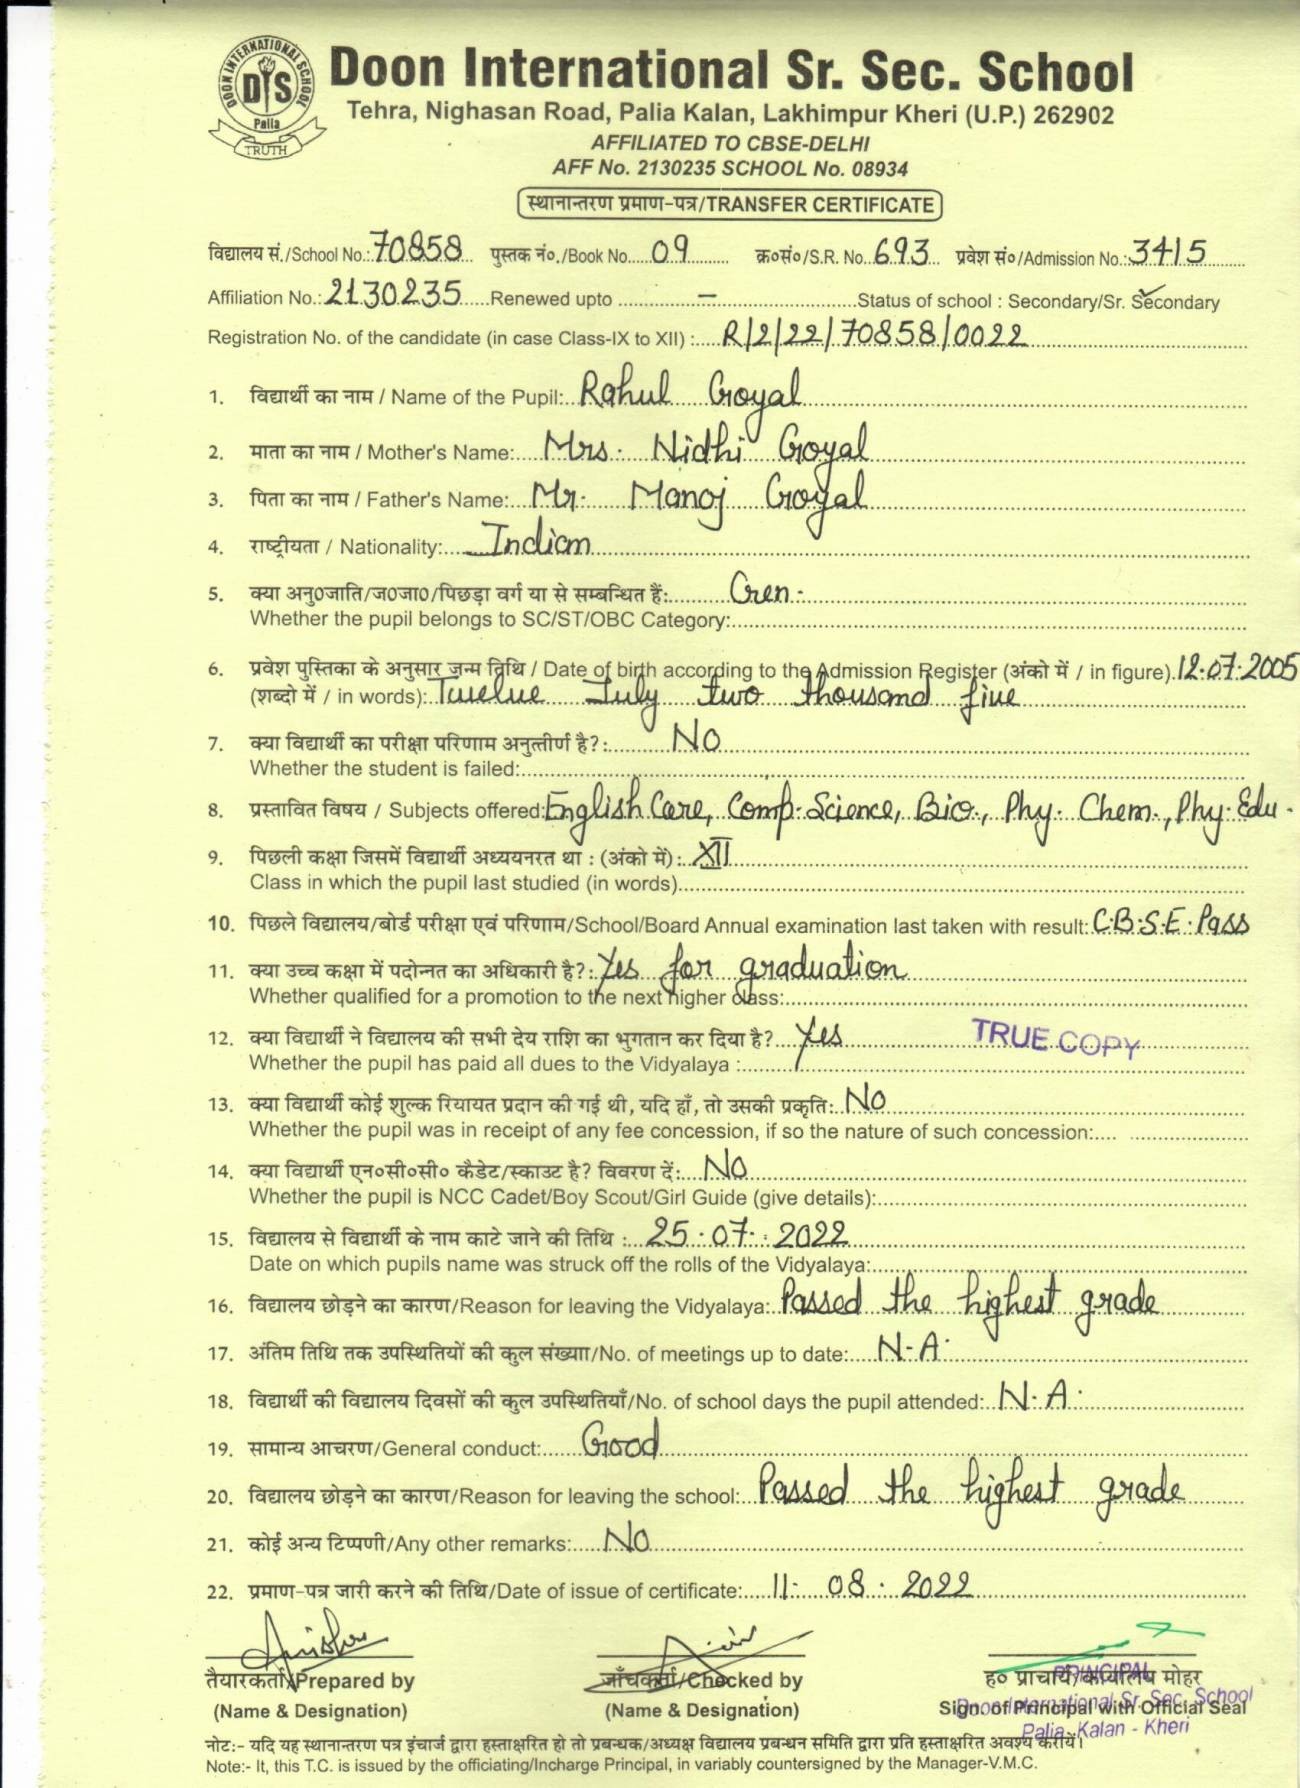 DOON INTERNATIONAL SCHOOL
DIS
Palia
TRUTH
Doon International Sr. Sec. School
Tehra, Nighasan Road, Palia Kalan, Lakhimpur Kheri (U.P.) 262902
AFFILIATED TO CBSE-DELHI
AFF No. 2130235 SCHOOL No. 08934
स्थानान्तरण प्रमाण-पत्र/TRANSFER CERTIFICATE
विद्यालय सं./School No.: 70858 पुस्तक नं०./Book No. 09 क्र०सं०/S.R. No. 693 प्रवेश सं०/Admission No.: 3415
Affiliation No.: 2130235 Renewed upto - Status of school : Secondary/Sr. Secondary
Registration No. of the candidate (in case Class-IX to XII) : R/2/22/70858/0022
1. विद्यार्थी का नाम / Name of the Pupil: Rahul Goyal
2. माता का नाम / Mother's Name: Mrs. Nidhi Goyal
3. पिता का नाम / Father's Name: Mr. Manoj Goyal
4. राष्ट्रीयता / Nationality: Indian
5. क्या अनु0जाति/ज0जा0/पिछड़ा वर्ग या से सम्बन्धित हैं: Gen.
Whether the pupil belongs to SC/ST/OBC Category:
6. प्रवेश पुस्तिका के अनुसार जन्म तिथि / Date of birth according to the Admission Register (अंको में / in figure). 12.07.2005
(शब्दो में / in words): Twelve July two thousand five
7. क्या विद्यार्थी का परीक्षा परिणाम अनुत्तीर्ण है?: No
Whether the student is failed:
8. प्रस्तावित विषय / Subjects offered: English Core, Comp. Science, Bio., Phy. Chem., Phy. Edu.
9. पिछली कक्षा जिसमें विद्यार्थी अध्ययनरत था : (अंको में): XII
Class in which the pupil last studied (in words)
10. पिछले विद्यालय/बोर्ड परीक्षा एवं परिणाम/School/Board Annual examination last taken with result: C.B.S.E. Pass
11. क्या उच्च कक्षा में पदोन्नत का अधिकारी है?: Yes for graduation
Whether qualified for a promotion to the next higher class:
12. क्या विद्यार्थी ने विद्यालय की सभी देय राशि का भुगतान कर दिया है? Yes TRUE COPY
Whether the pupil has paid all dues to the Vidyalaya :
13. क्या विद्यार्थी कोई शुल्क रियायत प्रदान की गई थी, यदि हाँ, तो उसकी प्रकृति: No
Whether the pupil was in receipt of any fee concession, if so the nature of such concession:
14. क्या विद्यार्थी एन०सी०सी० कैडेट/स्काउट है? विवरण दें: No
Whether the pupil is NCC Cadet/Boy Scout/Girl Guide (give details):
15. विद्यालय से विद्यार्थी के नाम काटे जाने की तिथि : 25.07.2022
Date on which pupils name was struck off the rolls of the Vidyalaya:
16. विद्यालय छोड़ने का कारण/Reason for leaving the Vidyalaya: Passed the highest grade
17. अंतिम तिथि तक उपस्थितियों की कुल संख्या/No. of meetings up to date: N.A.
18. विद्यार्थी की विद्यालय दिवसों की कुल उपस्थितियाँ/No. of school days the pupil attended: N.A.
19. सामान्य आचरण/General conduct: Good
20. विद्यालय छोड़ने का कारण/Reason for leaving the school: Passed the highest grade
21. कोई अन्य टिप्पणी/Any other remarks: No
22. प्रमाण-पत्र जारी करने की तिथि/Date of issue of certificate: 11.08.2022
तैयारकर्ता/Prepared by जाँचकर्ता/Checked by ह0 प्राचार्य/कार्यालय मोहर
(Name & Designation) (Name & Designation) Sign. of Principal with Official Seal
PRINCIPAL
Doon International Sr. Sec. School
Palia Kalan - Kheri
नोटः- यदि यह स्थानान्तरण पत्र इंचार्ज द्वारा हस्ताक्षरित हो तो प्रबन्धक/अध्यक्ष विद्यालय प्रबन्धन समिति द्वारा प्रति हस्ताक्षरित अवश्य करायें।
Note:- It, this T.C. is issued by the officiating/Incharge Principal, in variably countersigned by the Manager-V.M.C.